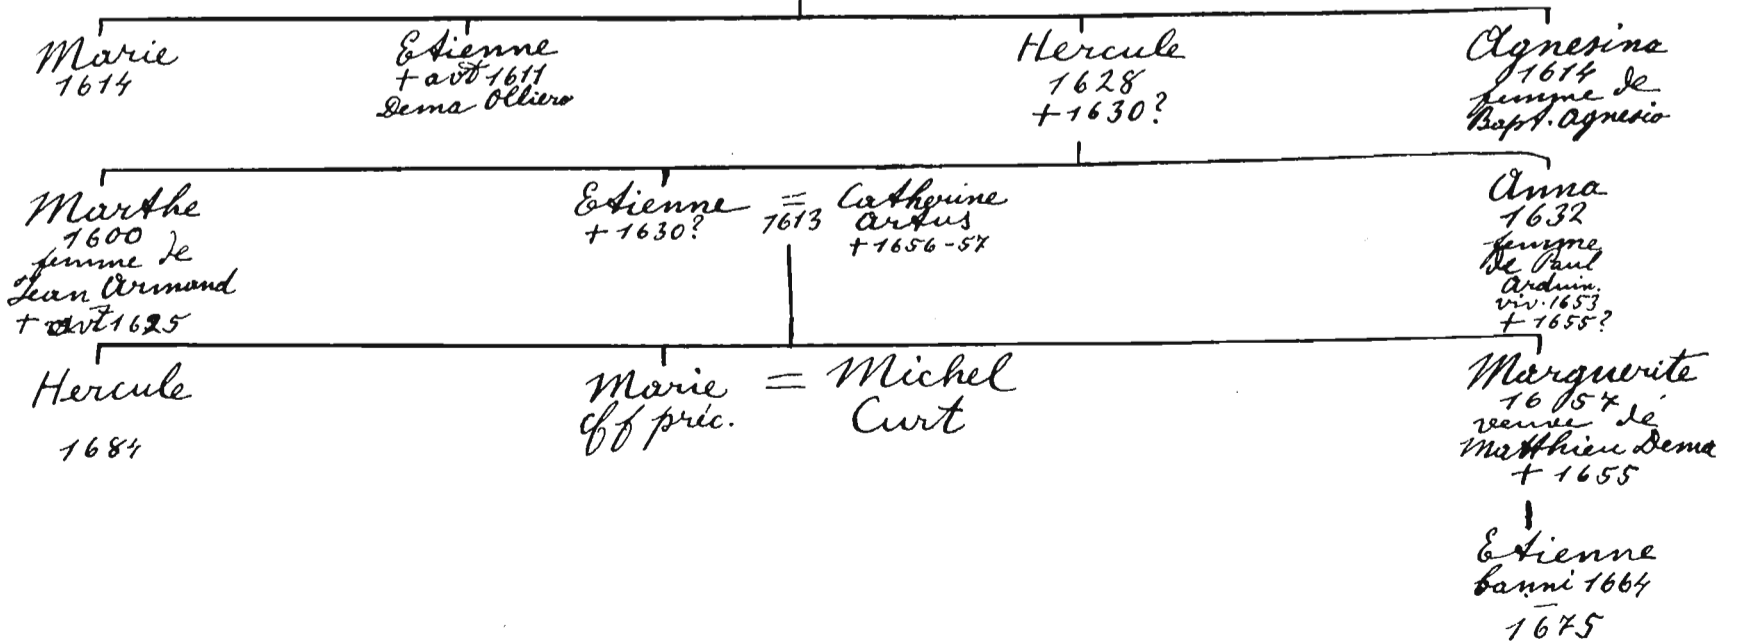 Marie
1614
Etienne
+ avt 1611
Dema Olliero
Hercule
1628
+ 1630?
Agnesina
1614
femme de
Bapt. Agnesio
Marthe
1600
femme de
Jean Armand
+ avt 1625
Etienne
+ 1630?
=
1613
Catherine
Artus
+ 1656-57
Anna
1632
femme
de Paul
Arduin.
viv. 1653
+ 1655?
Hercule
1684
Marie
cff préc.
=
Michel
Curt
Marguerite
1657
veuve de
Matthieu Dema
+ 1655
Etienne
banni 1664
1675